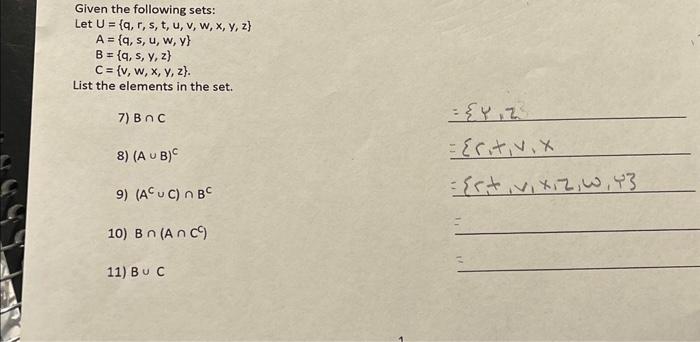 Given the following sets:
Let U = {q, r, s, t, u, v, w, x, y, z}
A = {q, s, u, w, y}
B = {q, s, y, z}
C = {v, w, x, y, z}.
List the elements in the set.
7) B ∩ C
={Y,Z}
8) (A ∪ B)ᶜ
={r,t,v,x
9) (Aᶜ ∪ C) ∩ Bᶜ
={r,t,v,x,z,w,y}
10) B ∩ (A ∩ Cᶜ)
=
11) B ∪ C
=
1